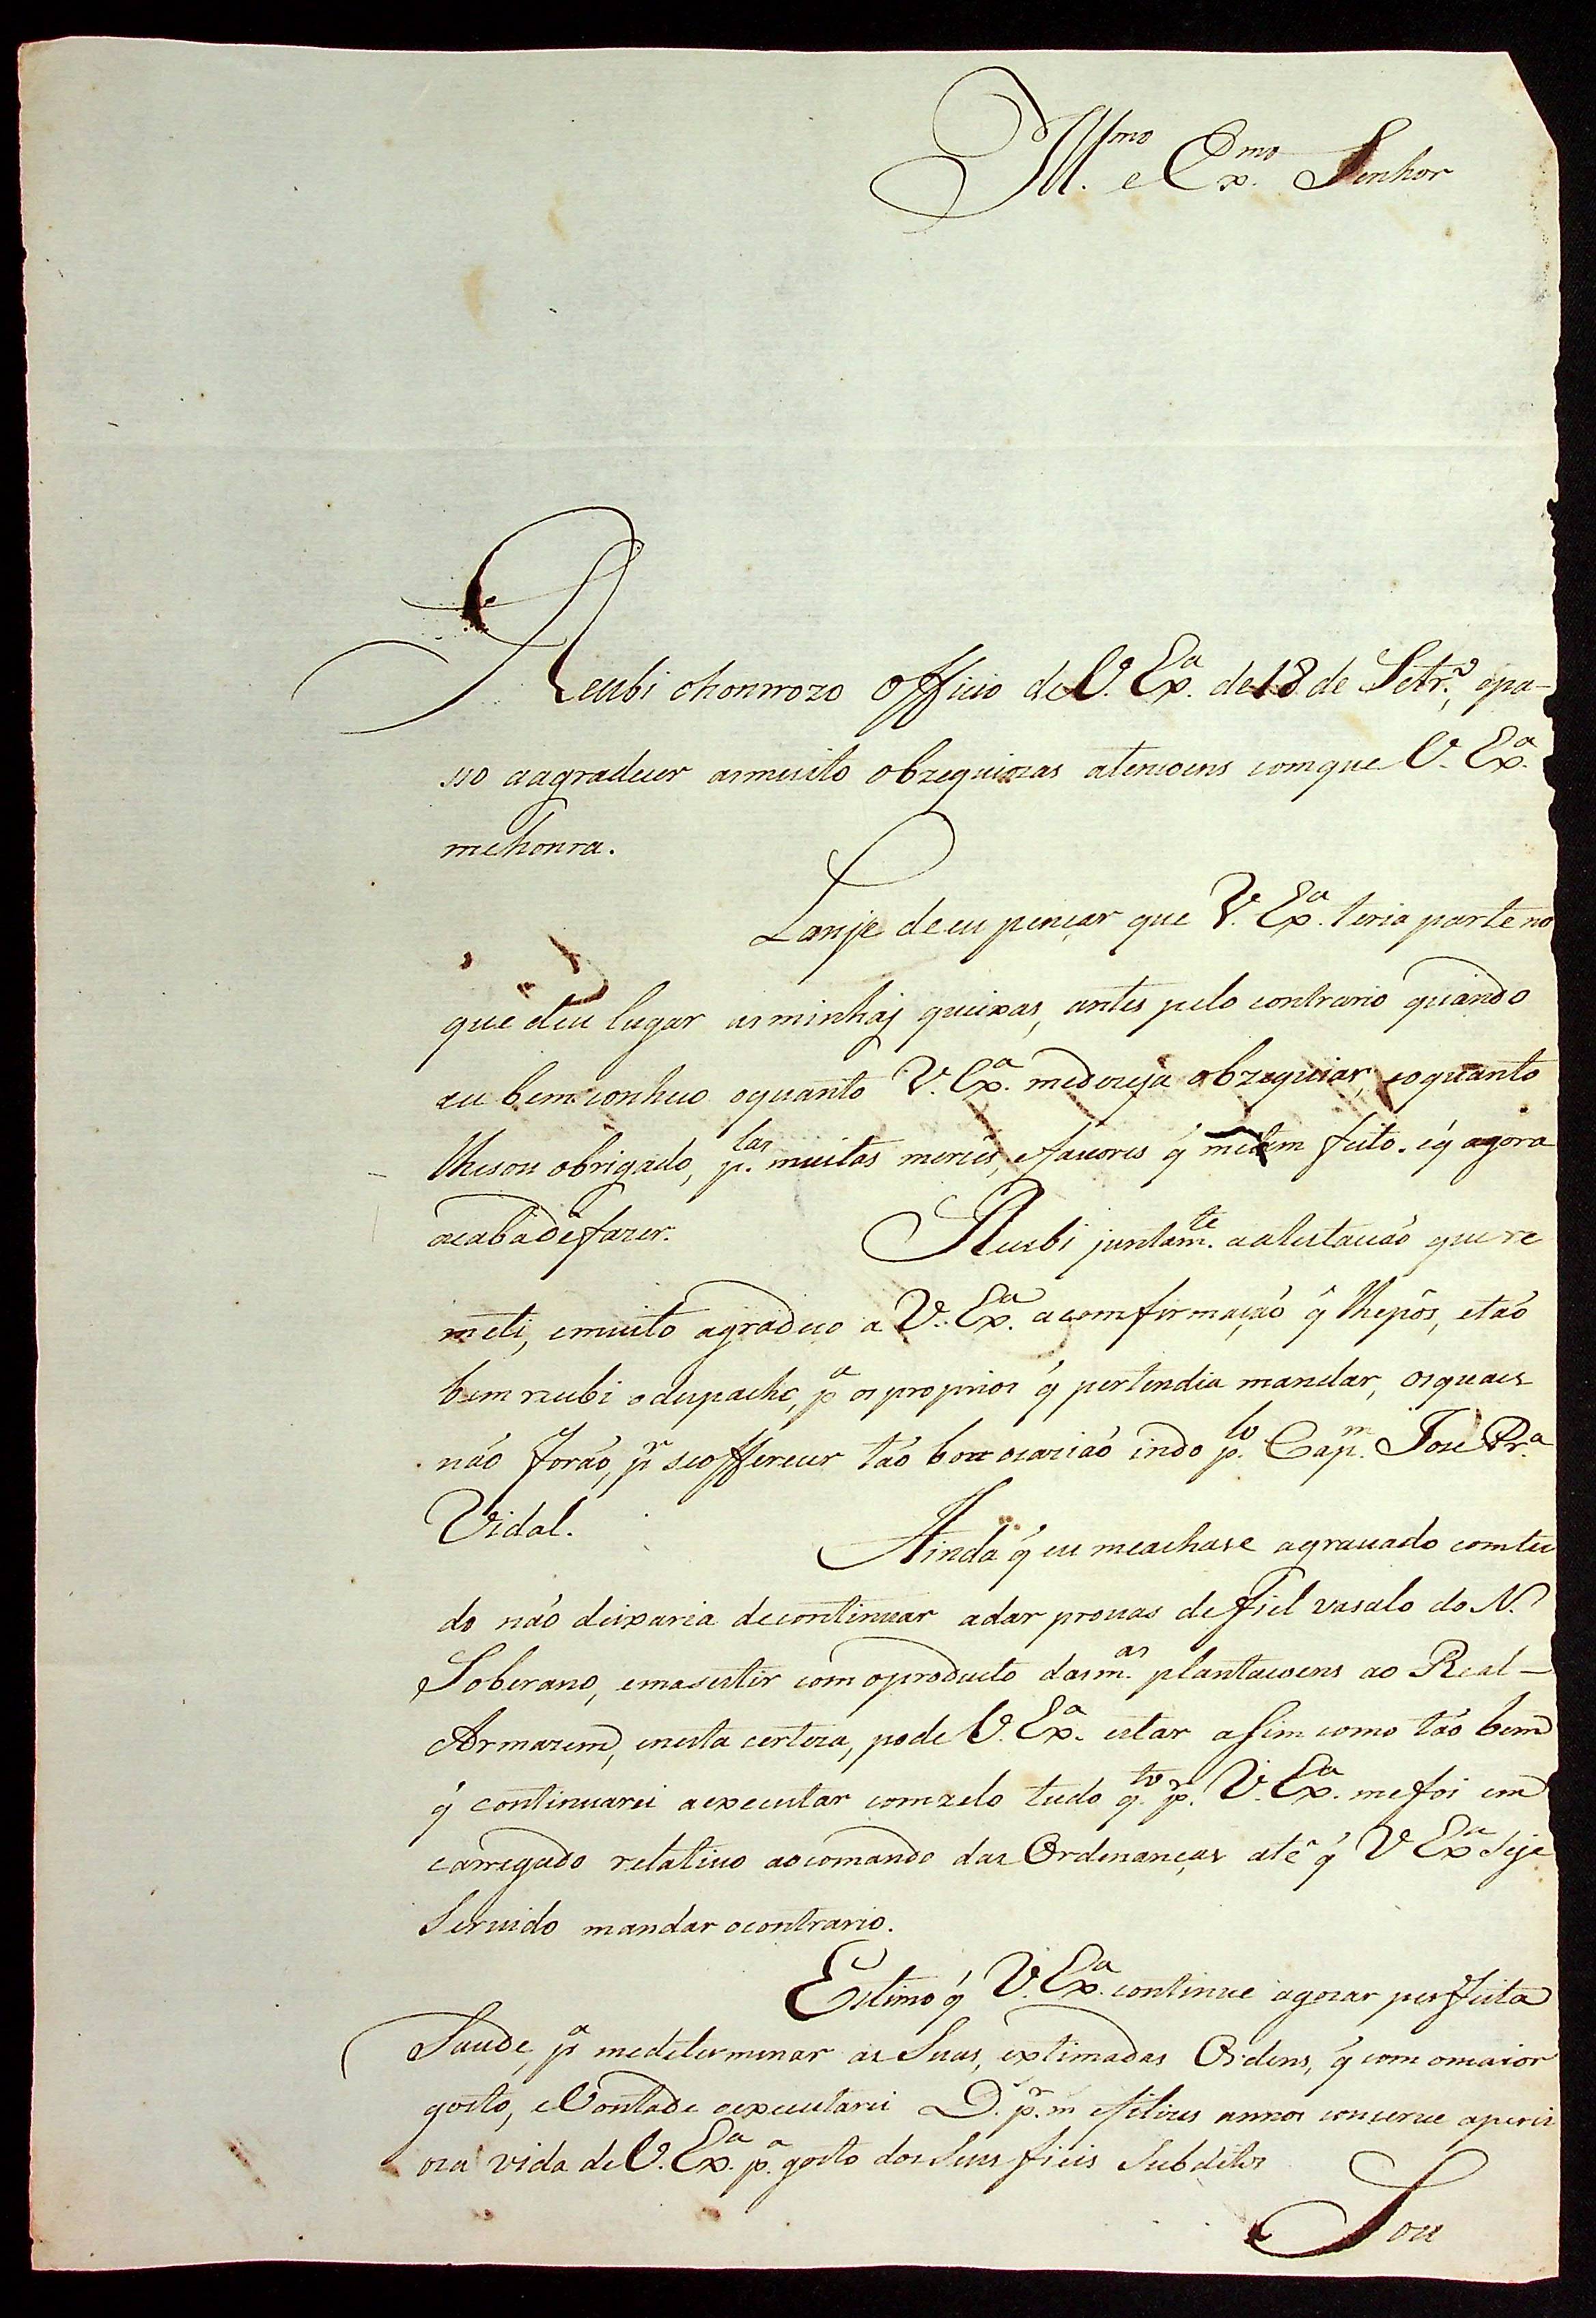 Ill.mo e Ex.mo Senhor
Recebi ohonrrozo Officio deV. Ex.a de18 de Setr.o, epa-
sso aagradecer asmuito obzequiozas atencoens comque V. Ex.a
mehonra.
Lonje deeu pençar que V. Ex.a teria parteno
que deu lugar asminhas queixas, antes pelo contrario quando
eu bem conheco oquanto V. Ex.a medezeja obzequiar, eoquanto
lhesou obrigado, p.las muitas merces, efavores q̃ metem feito. eq̃ agora
acabadefazer. Recebi juntam.te aatestacaõ quere
meti, emuito agradeco a V. Ex.a acomfirmaçaõ q̃ lhepôs, etaõ
bem recebi odespacho, p.a osproprios q̃ pertendia mandar, osquaes
naõ foraõ, p.r seofferecer taõ boa ocaziaõ indo p.lo Cap.m Joze Pr.a
Vidal. Ainda q̃ eu meachase agravado comtu
do naõ deixaria decontinuar adar provas defiel vasalo do N.
Soberano, emasestir com oproducto dasm.as plantacoens ao Real-
Armazem, enesta certeza, pode V. Ex.a estar asim como taõ bem
q̃ continuarei aexecutar comzelo tudo q.to p.r V. Ex.a mefoi em
carregado relativo aocomando das Ordenanças atê q̃ V Ex.a seje
servido mandar ocontrario.
Estimo q̃ V. Ex.a continue agozar perfeita
Saude, p.a medeterminar as Suas, extimadas Ordens, q̃ com omaior
gosto, eVontade aexecutarei D. p.r m efelices annos concerve apreci
oza vida de V. Ex.a p.a gosto dosSeus fieis Subditos
Sou